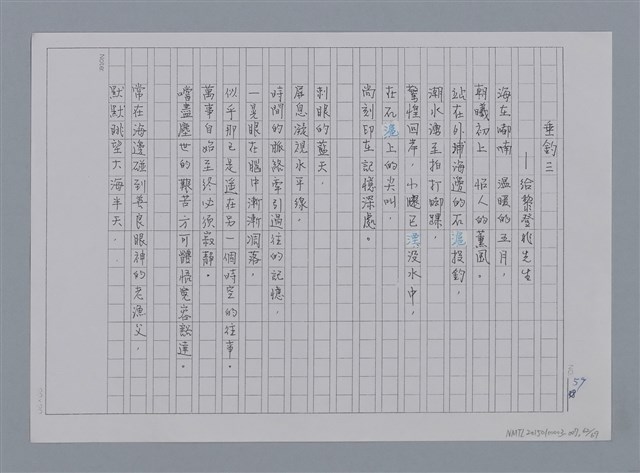 垂釣三
—給黎登兆先生
海在呢喃 溫暖的五月，
朝曦初上 怡人的薰風。
站在外埔海邊的石滬投釣，
潮水湧至拍打腳踝，
驚惶回岸，小腿已浸沒水中，
在石滬上的尖叫，
尚刻印在記憶深處。
刺眼的藍天，
屏息凝視水平線，
時間的脈絡牽引過往的記憶，
一晃眼在腦中漸漸凋落，
似乎那已是遙在另一個時空的往事。
萬事自始至終必須寂靜。
嚐盡塵世的艱苦方可體悟寬容豁達。
常在海邊碰到善良眼神的老漁父，
默默眺望大海半天，
57